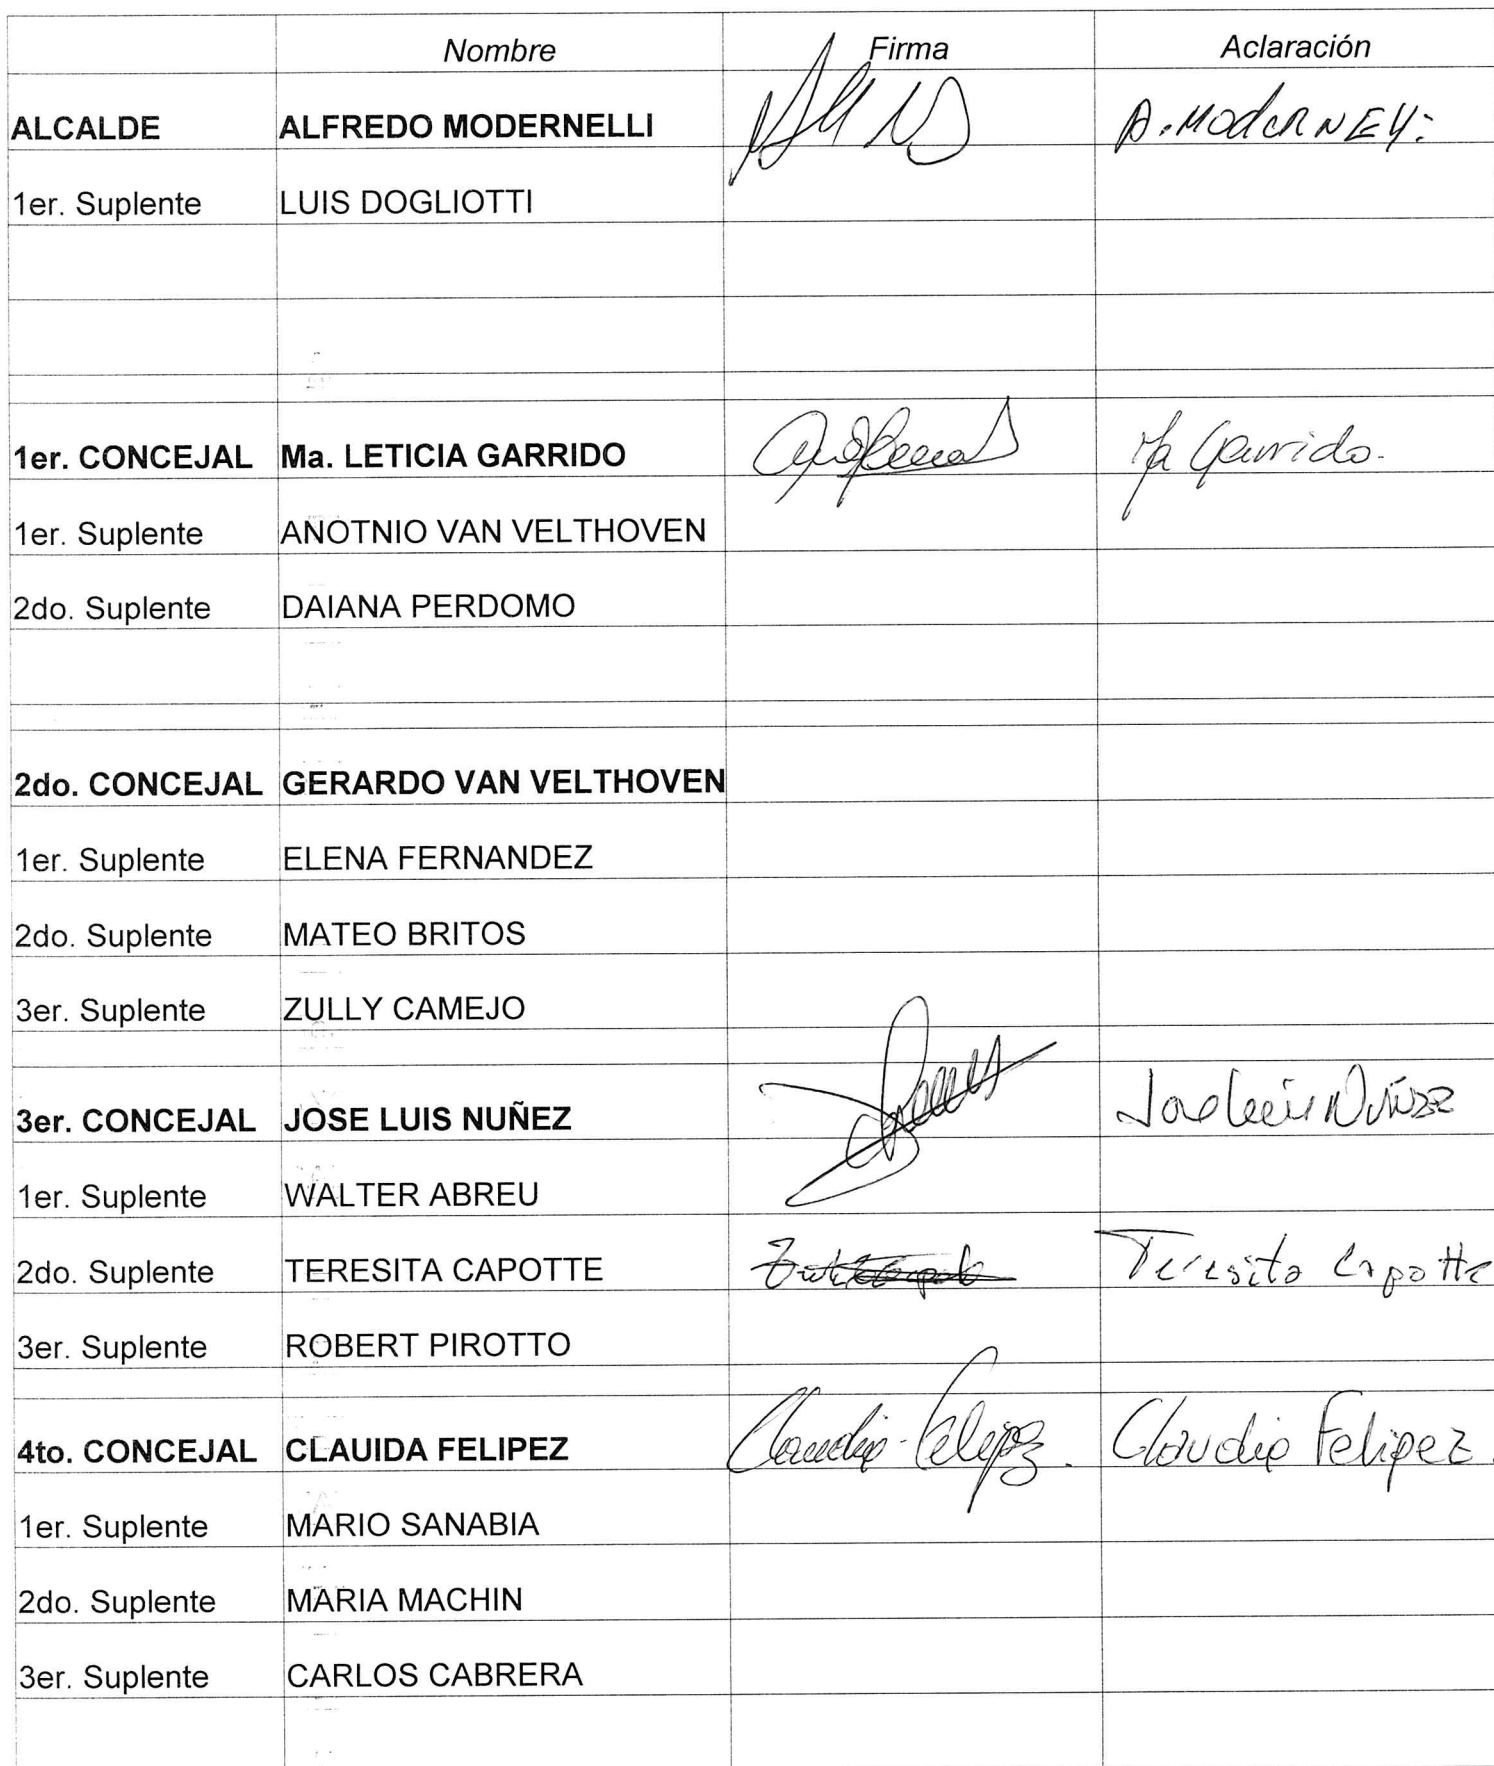 Nombre Firma Aclaración
ALCALDE ALFREDO MODERNELLI A. MODERNELLI
1er. Suplente LUIS DOGLIOTTI
1er. CONCEJAL Ma. LETICIA GARRIDO Ma Garrido.
1er. Suplente ANOTNIO VAN VELTHOVEN
2do. Suplente DAIANA PERDOMO
2do. CONCEJAL GERARDO VAN VELTHOVEN
1er. Suplente ELENA FERNANDEZ
2do. Suplente MATEO BRITOS
3er. Suplente ZULLY CAMEJO
3er. CONCEJAL JOSE LUIS NUÑEZ Jose Luis Nuñez
1er. Suplente WALTER ABREU
2do. Suplente TERESITA CAPOTTE Teresita Capotte
3er. Suplente ROBERT PIROTTO
4to. CONCEJAL CLAUIDA FELIPEZ Claudia Felipez. Claudia Felipez.
1er. Suplente MARIO SANABIA
2do. Suplente MARIA MACHIN
3er. Suplente CARLOS CABRERA